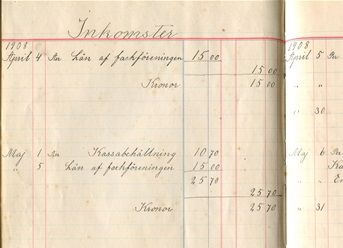 Inkomster
1908
April 4 An Lån af fackföreningen 15 00
15 00
Kronor 15 00
Maj 1 An Kassabehållning 10 70
" 5 Lån af fackföreningen 15 00
25 70
25 70
Kronor 25 70
1908
April 5 Pr
" "
" 30
Maj 6 Pr
" " Ka
" 31